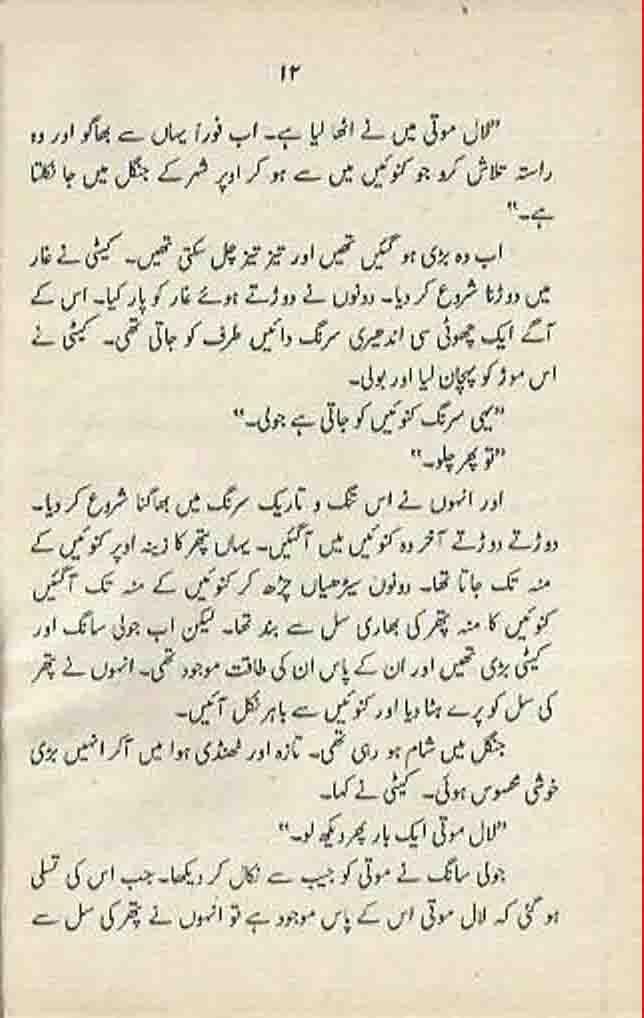 ۱۲
"لال موتی میں نے اٹھا لیا ہے۔ اب فوراً یہاں سے بھاگو اور وہ
راستہ تلاش کرو جو کنوئیں میں سے ہو کر اوپر شہر کے جنگل میں جا نکلتا
ہے۔"
اب وہ بڑی ہو گئیں تھیں اور تیز تیز چل سکتی تھیں۔ کیٹی نے غار
میں دوڑنا شروع کر دیا۔ دونوں نے دوڑتے ہوئے غار کو پار کیا۔ اس کے
آگے ایک چھوٹی سی اندھیری سرنگ دائیں طرف کو جاتی تھی۔ کیٹی نے
اس موڑ کو پہچان لیا اور بولی۔
"یہی سرنگ کنوئیں کو جاتی ہے جولی۔"
"تو پھر چلو۔"
اور انہوں نے اس تنگ و تاریک سرنگ میں بھاگنا شروع کر دیا۔
دوڑتے دوڑتے آخر وہ کنوئیں میں آگئیں۔ یہاں پتھر کا زینہ اوپر کنوئیں کے
منہ تک جاتا تھا۔ دونوں سیڑھیاں چڑھ کر کنوئیں کے منہ تک آگئیں
کنوئیں کا منہ پتھر کی بھاری سل سے بند تھا۔ لیکن اب جولی سانگ اور
کیٹی بڑی تھیں اور ان کے پاس ان کی طاقت موجود تھی۔ انہوں نے پتھر
کی سل کو پرے ہٹا دیا اور کنوئیں سے باہر نکل آئیں۔
جنگل میں شام ہو رہی تھی۔ تازہ اور ٹھنڈی ہوا میں آکر انہیں بڑی
خوشی محسوس ہوئی۔ کیٹی نے کہا۔
"لال موتی ایک بار پھر دیکھ لو۔"
جولی سانگ نے موتی کو جیب سے نکال کر دیکھا۔ جب اس کی تسلی
ہو گئی کہ لال موتی اس کے پاس موجود ہے تو انہوں نے پتھر کی سل سے